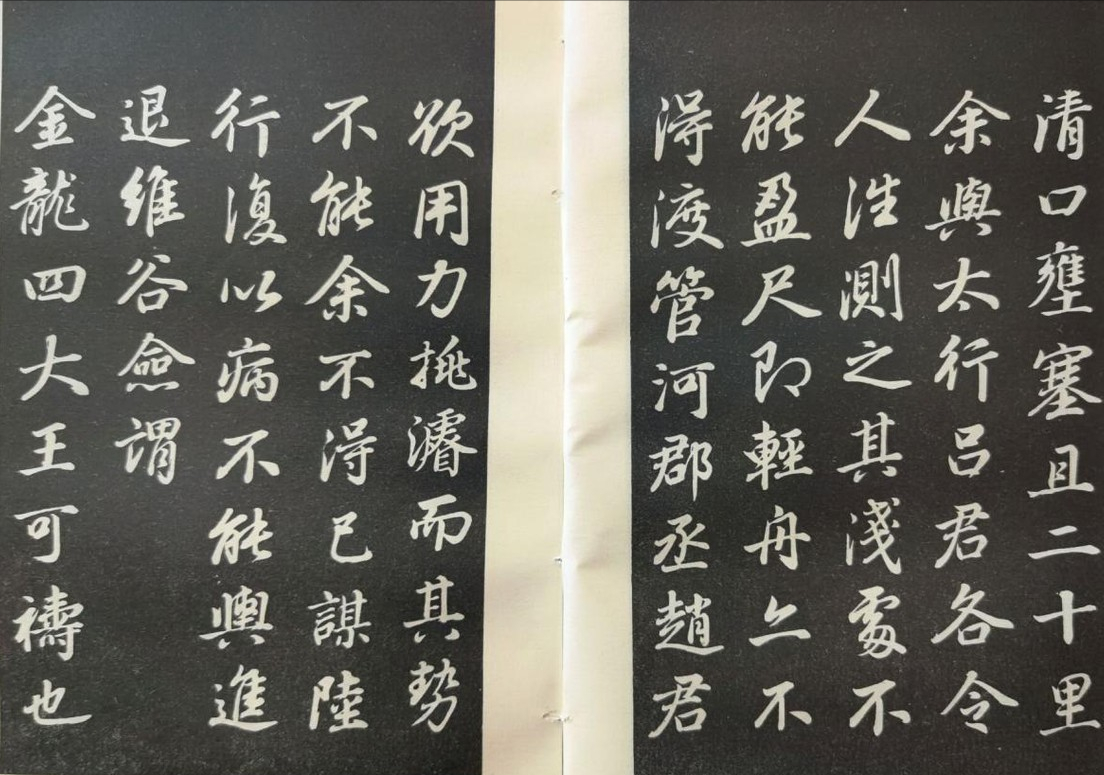 清口壅塞且二十里
余與太行呂君各令
人往測之其淺處不
能盈尺即輕舟亦不
得渡管河郡丞趙君
欲用力挑濬而其勢
不能余不得已謀陸
行復以病不能輿進
退維谷僉謂
金龍四大王可禱也